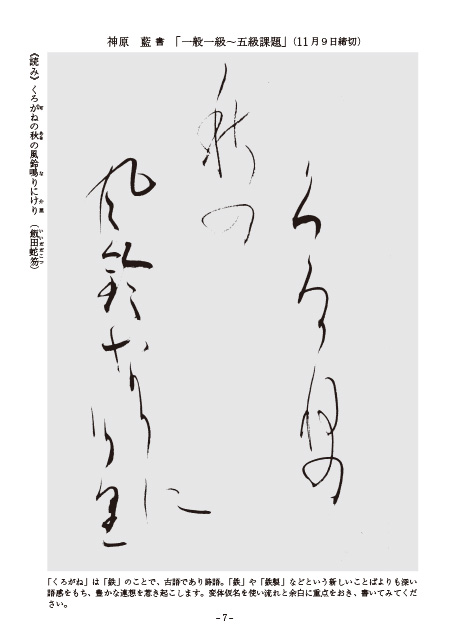 神原 藍 書 「一般一級～五級課題」(11月9日締切)
《読み》くろがねの秋の風鈴鳴りにけり (飯田蛇笏)
くろ可年の
秋の
風鈴なりに
けり里
「くろがね」は「鉄」のことで、古語であり詩語。「鉄」や「鉄製」などという新しいことばよりも深い
語感をもち、豊かな連想を惹き起こします。変体仮名を使い流れと余白に重点をおき、書いてみてくだ
さい。
- 7 -